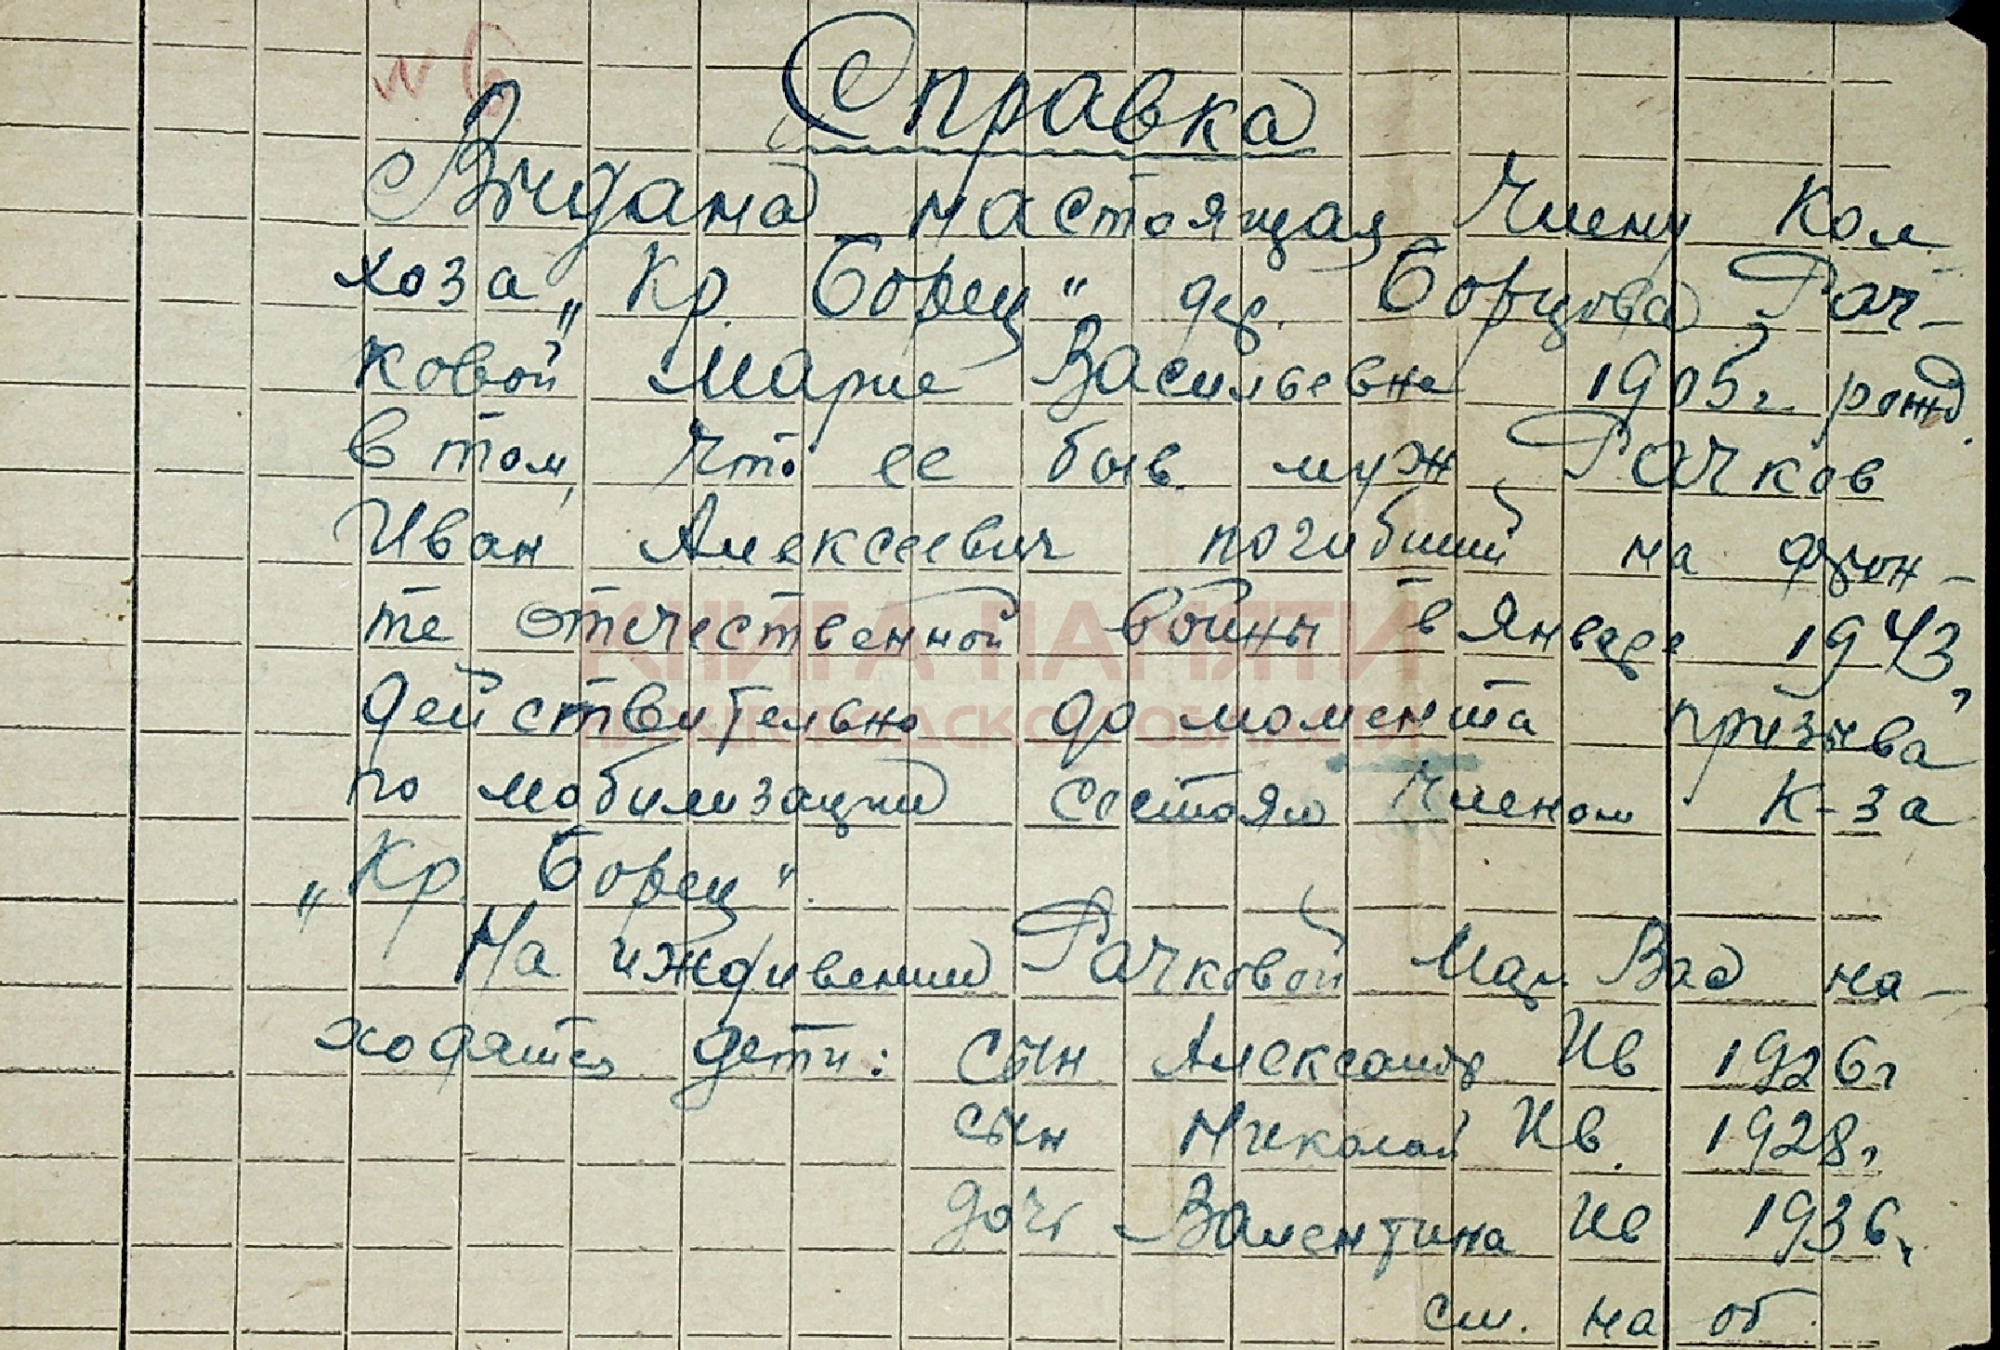 № 6
Справка
Выдана настоящая Члену Кол
хоза „Кр. Борец“ дер. Борцова Рач-
ковой Марие Васильевне 1905 г. рожд.
в том, что ее быв. муж Рачков
Иван Алексеевич погибший на фрон-
те отечественной войны в Январе 1943,
действительно до момента призыва
по мобилизации состоял Членом К-за
„Кр. Борец“.
На иждивении Рачковой Мар. Вас на-
ходятся дети: сын Александр Ив 1926 г
сын Николай Ив. 1928 г
дочь Валентина Ив 1936 г.
см. на об.
КНИГА ПАМЯТИ
НИЖЕГОРОДСКОЙ ОБЛАСТИ